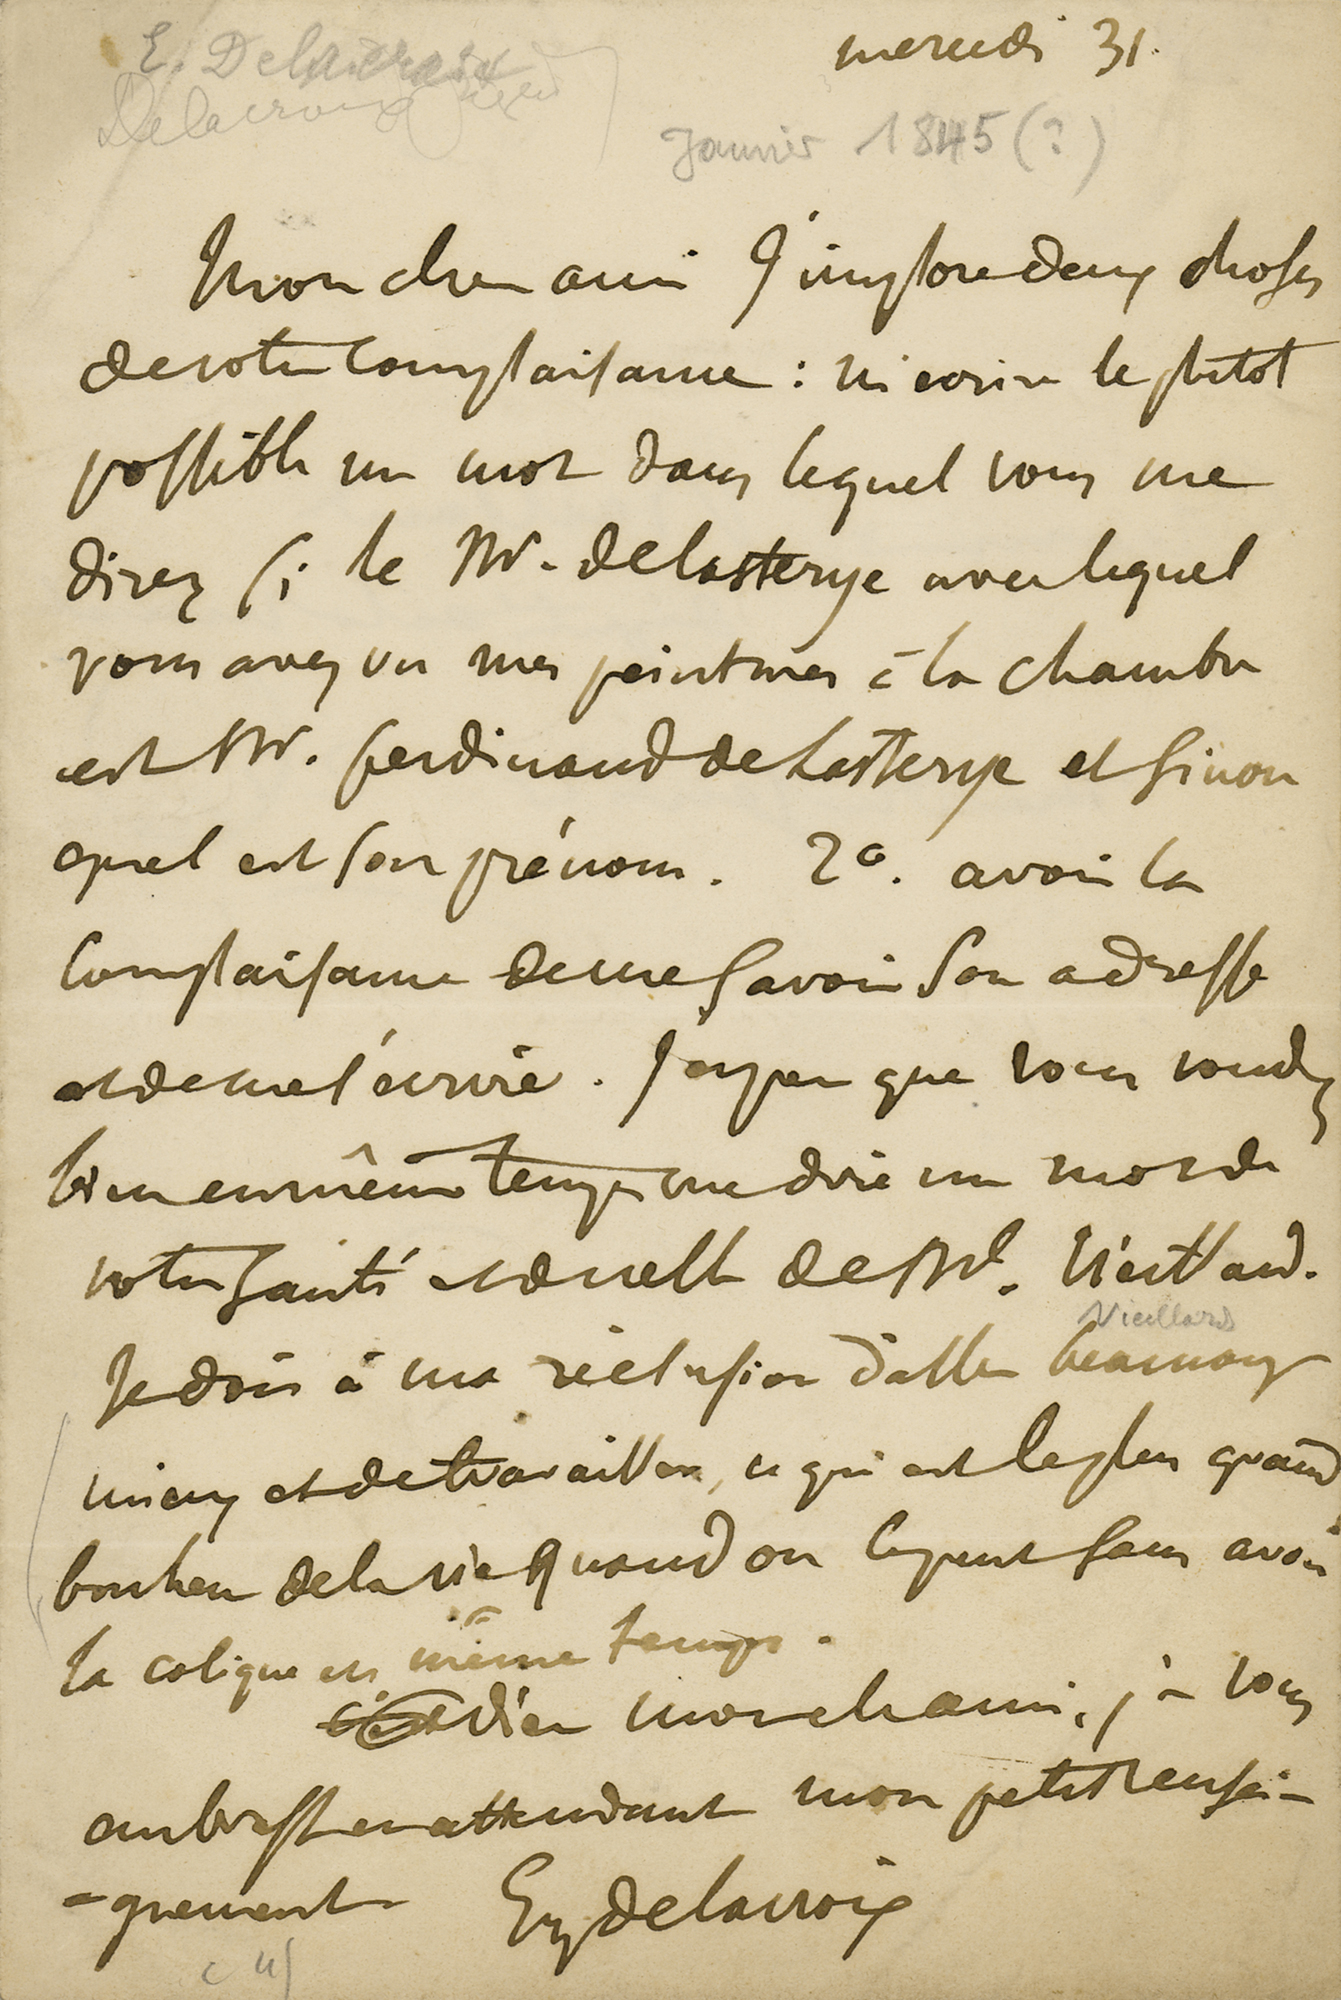 E. Delacroix
Delacroix
mercredi 31.
Janvier 1845 (?)
Mon cher ami J'implore deux choses
de votre complaisance : m'écrire le plutot
possible un mot dans lequel vous me
direz si le Mr. de Lasterye avec lequel
vous avez vu mes peintures à la chambre
est Mr. ferdinand de Lasterye et sinon
quel est son prénom. 2o. avoir la
complaisance de me savoir son adresse
et de me l'écrire. J'espere que vous voudrez
bien en même temps me dire un mot de
votre santé et de celle de Md. Vieillard.
Vieillard
Je dois à ma réclusion d'aller beaucoup
mieux et de travailler, ce qui est le plus grand
bonheur de la vie quand on le peut sans avoir
la colique en même temps.
adieu mon cher ami, je vous
embrasse en attendant mon petit rensei-
-gnement Eug Delacroix